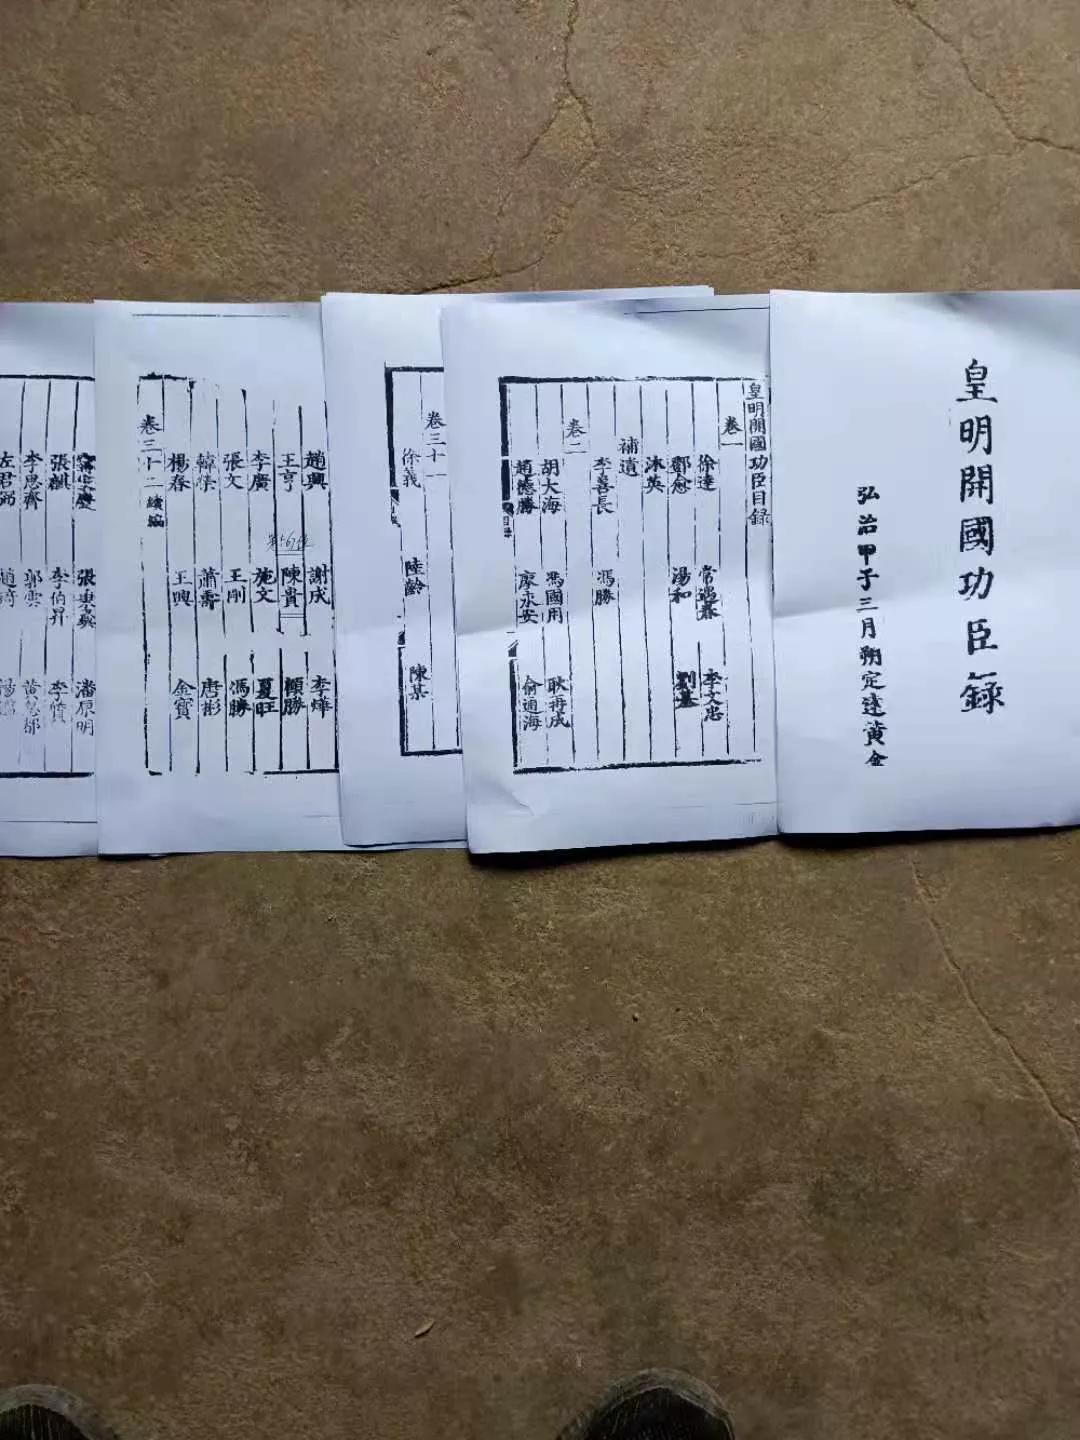 皇明開國功臣錄
弘治甲子三月朔定遠黃金
皇明開國功臣目錄
卷一
徐達 常遇春 李文忠
鄧愈 湯和 劉基
沐英
補遺
李善長 馮勝
卷二
胡大海 馮國用 耿再成
趙德勝 廖永安 俞通海
目錄
卷三十一
徐義 陸齡 陳基
趙興 謝成 李燁
王亨 陳貴 顧勝
李廣 施文 夏旺
張文 王剛 馮勝
韓榮 蕭壽 唐彬
楊春 王興 金寶
卷三十二 續編
張興 潘原明
張麒 李伯昇 李質
李思齊 郭雲
左君弼 趙琦